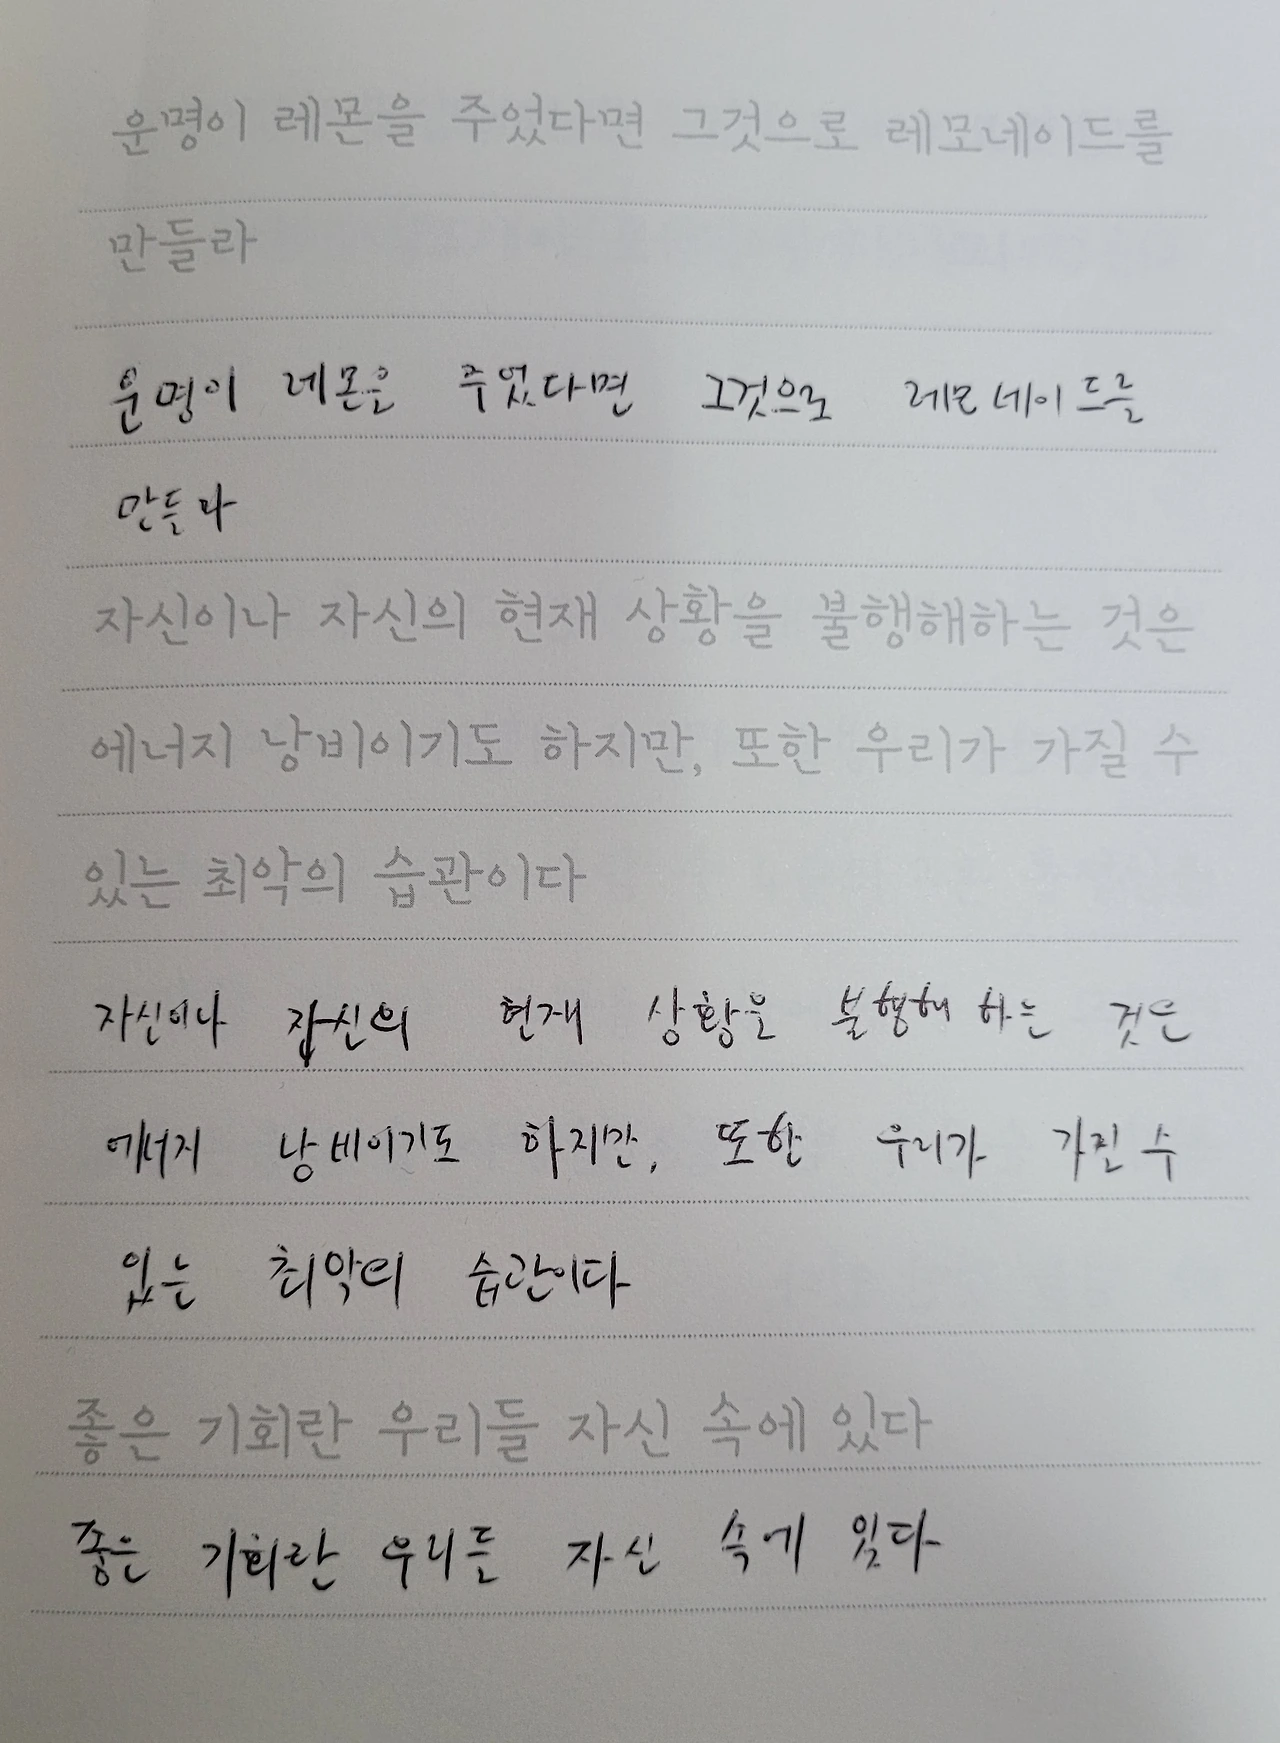 운명이 레몬을 주었다면 그것으로 레모네이드를
만들라
운명이 레몬은 주었다면 그것으로 레모네이드를
만들라
자신이나 자신의 현재 상황을 불행해하는 것은
에너지 낭비이기도 하지만, 또한 우리가 가질 수
있는 최악의 습관이다
자신이나 자신의 현재 상황을 불행해 하는 것은
에너지 낭비이기도 하지만, 또한 우리가 가진 수
있는 최악의 습관이다
좋은 기회란 우리들 자신 속에 있다
좋은 기회란 우리들 자신 속에 있다